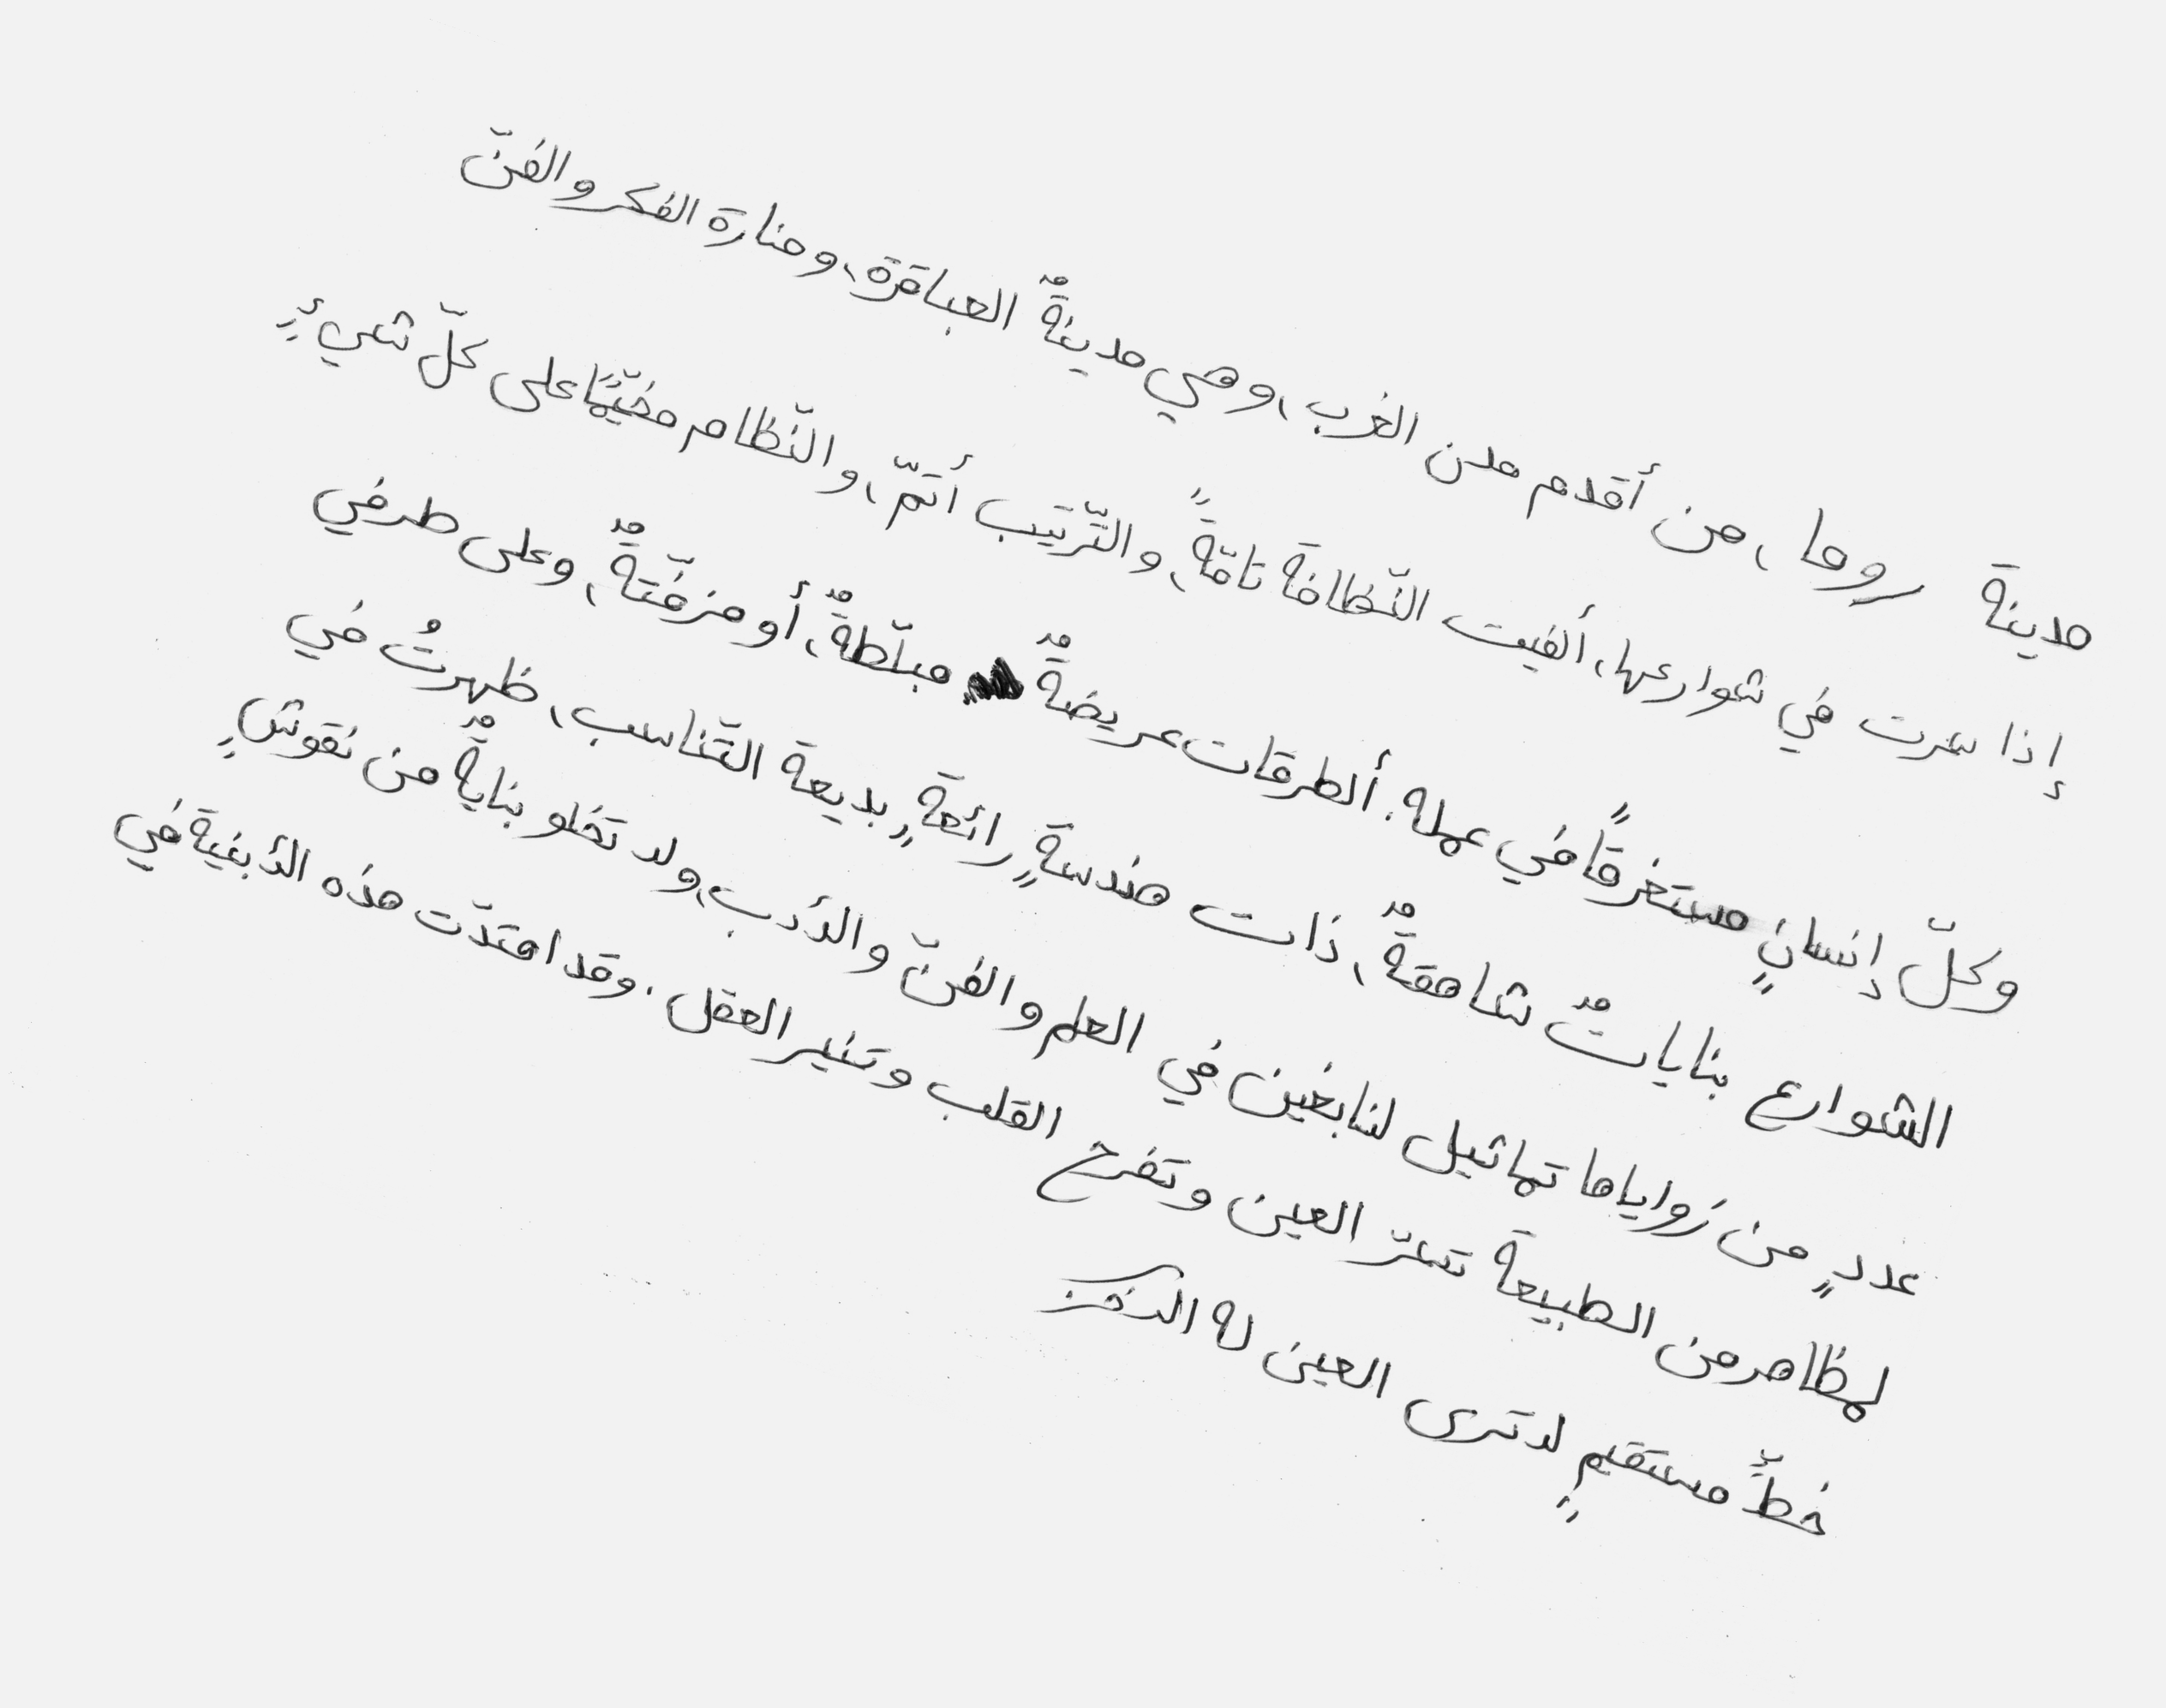 مدينة روما، من أقدم مدن الغرب، وهي مدينةٌ العباقرة، ومنارة الفكر والفنّ
إذا سرت في شوارعها، ألفيت النّظافة تامّةً، والتّرتيب أتمّ، والنّظام مخيّمًا على كلّ شيءٍ
وكلّ إنسانٍ مستغرقًا في عمله. ألطرقات عريضةٌ مبلّطةٌ، أو مزفّتةٌ، وعلى طرفي
الشوارع بناياتٌ شاهقةٌ، ذات هندسةٍ رائعةٍ بديعة التّناسب، ظهرتُ في
عددٍ من زواياها تماثيل لنابغين في العلم والفنّ والأدب، ولا تخلو بنايةٌ من نقوشٍ
لمظاهر من الطبيعة تسّر العين وتفرح القلب وتنير العقل. وقد امتدّت هذه الأبنية في
خطٍّ مستقيمٍ لا ترى العين له